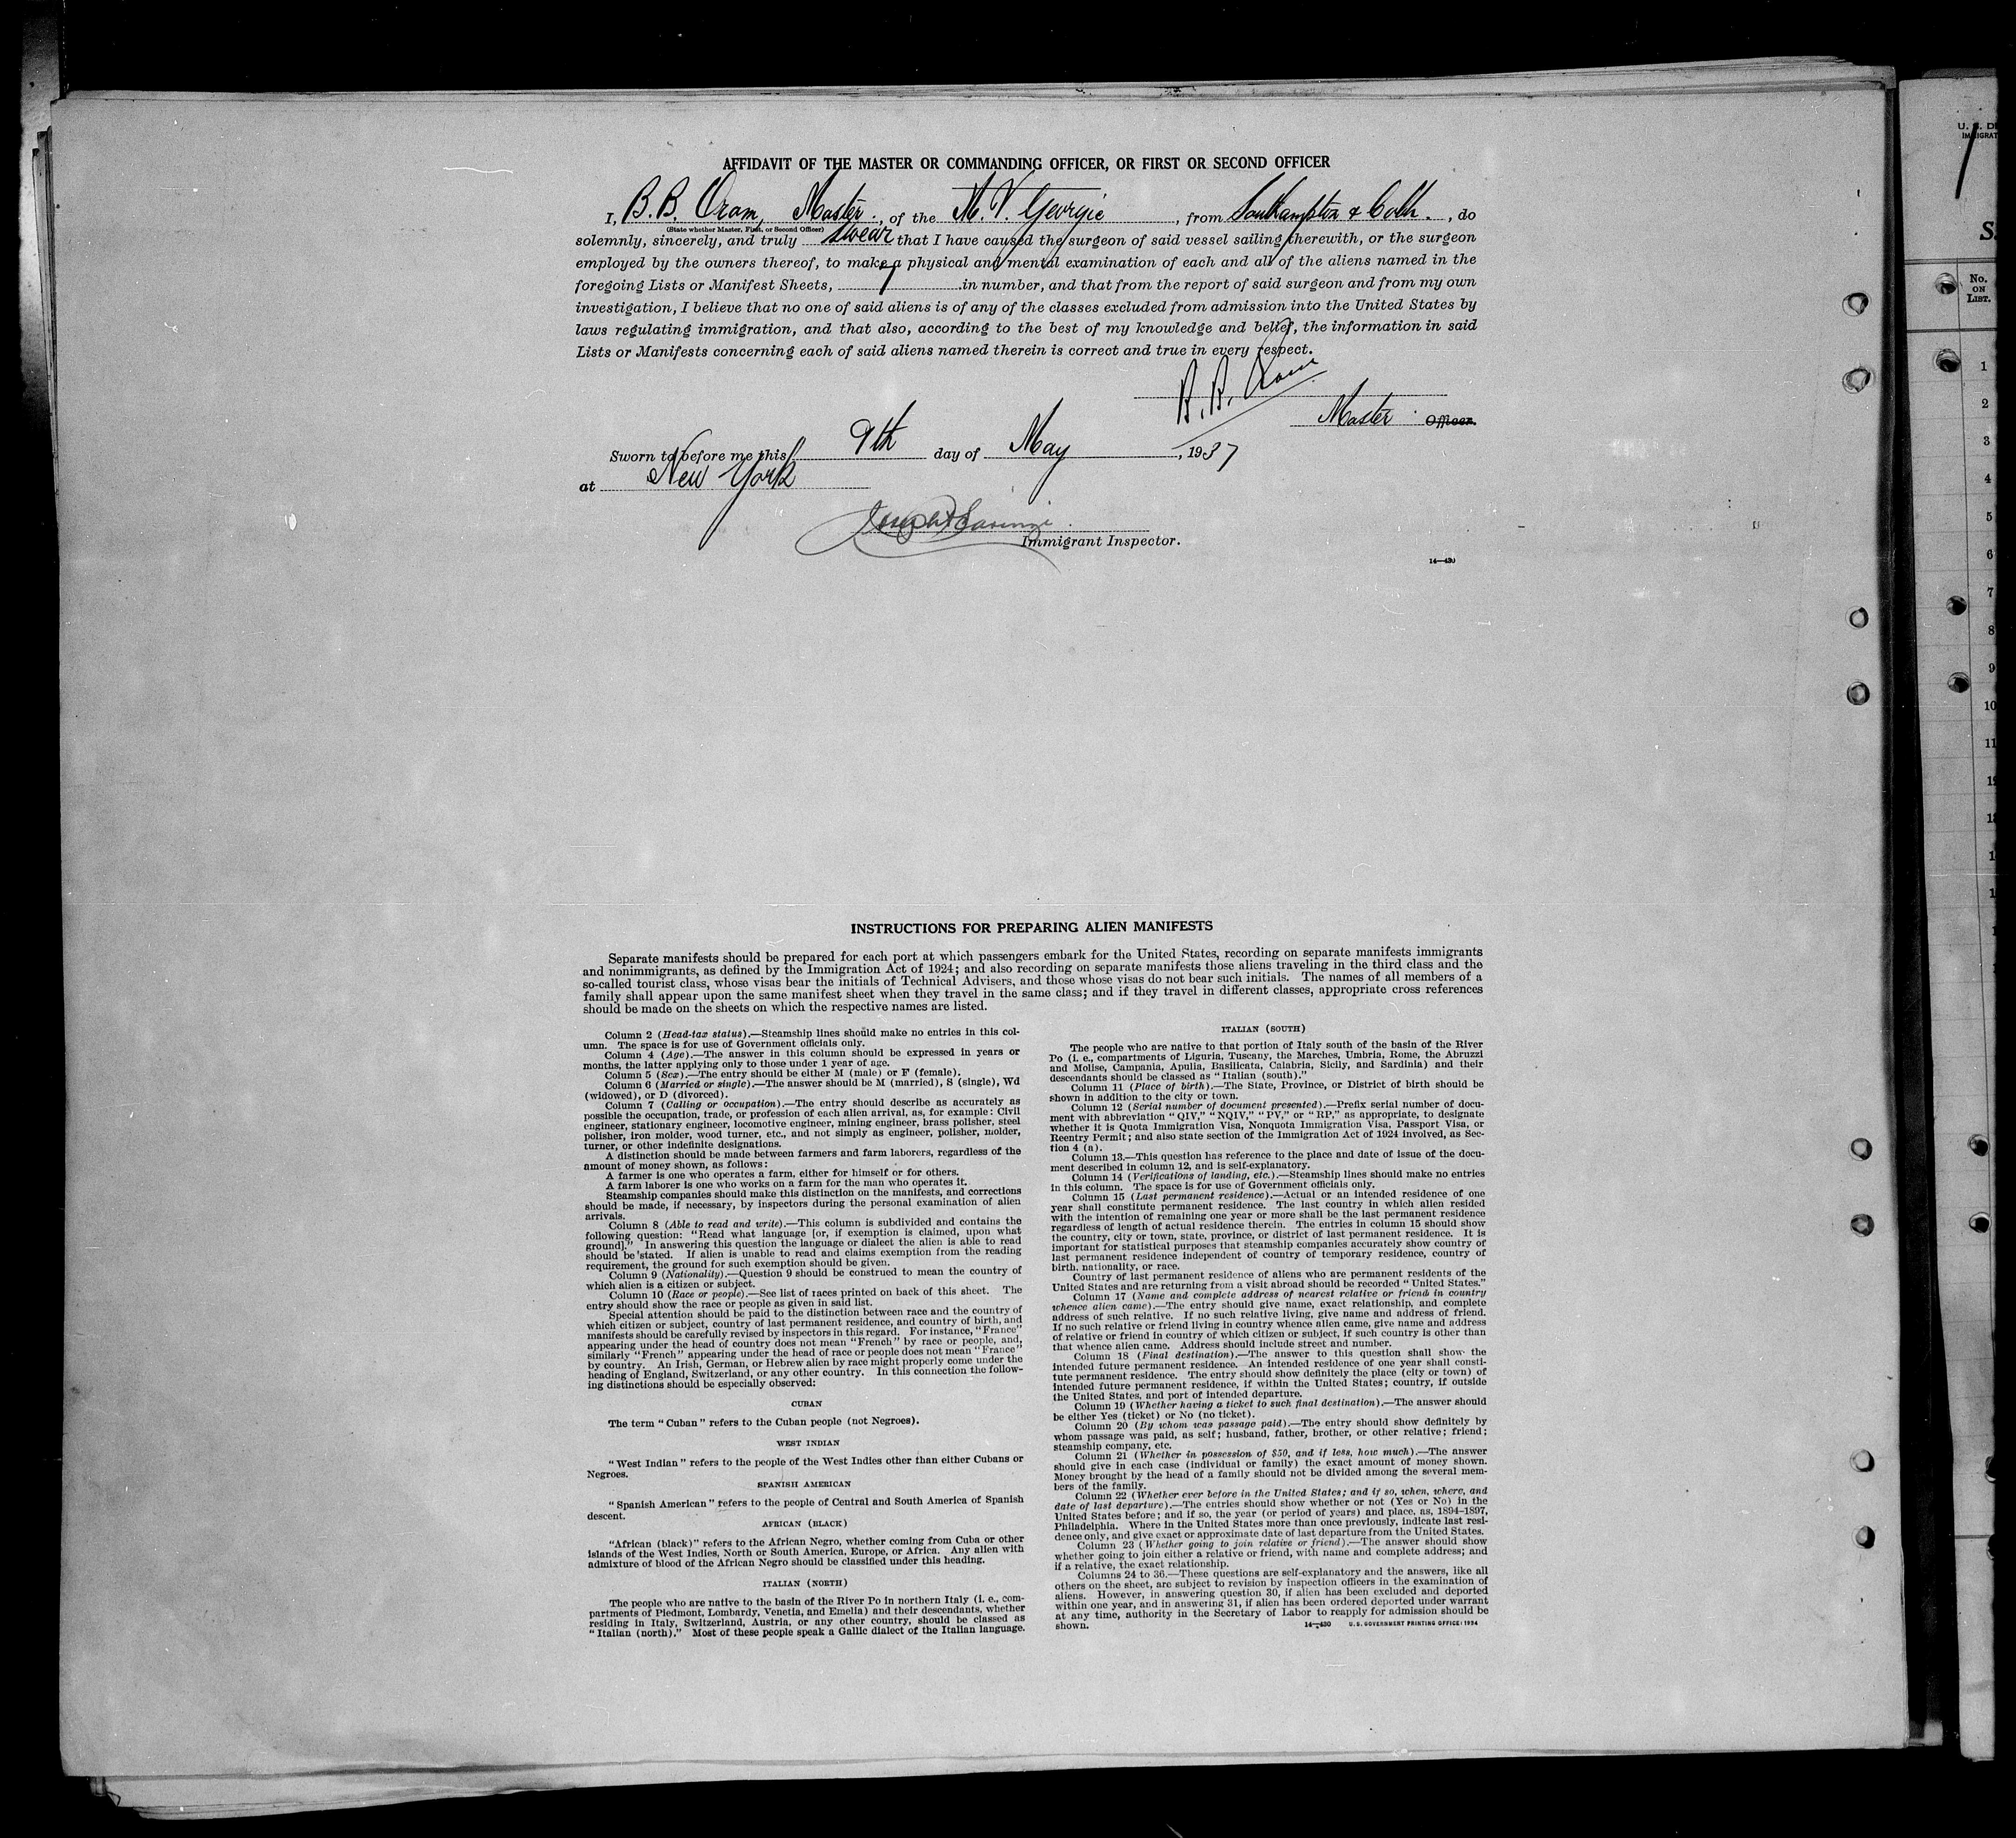 AFFIDAVIT OF THE MASTER OR COMMANDING OFFICER, OR FIRST OR SECOND OFFICER
I, B. B. Oram, Master., of the M. V. Georgic, from Southampton & Cobh., do
(State whether Master, First, or Second Officer)
solemnly, sincerely, and truly swear that I have caused the surgeon of said vessel sailing therewith, or the surgeon
employed by the owners thereof, to make a physical and mental examination of each and all of the aliens named in the
foregoing Lists or Manifest Sheets, 7 in number, and that from the report of said surgeon and from my own
investigation, I believe that no one of said aliens is of any of the classes excluded from admission into the United States by
laws regulating immigration, and that also, according to the best of my knowledge and belief, the information in said
Lists or Manifests concerning each of said aliens named therein is correct and true in every respect.
B. B. Oram
Master Officer.
Sworn to before me this 9th day of May, 1937
at New York
Immigrant Inspector.
14—430
INSTRUCTIONS FOR PREPARING ALIEN MANIFESTS
Separate manifests should be prepared for each port at which passengers embark for the United States, recording on separate manifests immigrants
and nonimmigrants, as defined by the Immigration Act of 1924; and also recording on separate manifests those aliens traveling in the third class and the
so-called tourist class, whose visas bear the initials of Technical Advisers, and those whose visas do not bear such initials. The names of all members of a
family shall appear upon the same manifest sheet when they travel in the same class; and if they travel in different classes, appropriate cross references
should be made on the sheets on which the respective names are listed.
Column 2 (Head-tax status).—Steamship lines should make no entries in this col-
umn. The space is for use of Government officials only.
Column 4 (Age).—The answer in this column should be expressed in years or
months, the latter applying only to those under 1 year of age.
Column 5 (Sex).—The entry should be either M (male) or F (female).
Column 6 (Married or single).—The answer should be M (married), S (single), Wd
(widowed), or D (divorced).
Column 7 (Calling or occupation).—The entry should describe as accurately as
possible the occupation, trade, or profession of each alien arrival, as, for example: Civil
engineer, stationary engineer, locomotive engineer, mining engineer, brass polisher, steel
polisher, iron molder, wood turner, etc., and not simply as engineer, polisher, molder,
turner, or other indefinite designations.
A distinction should be made between farmers and farm laborers, regardless of the
amount of money shown, as follows:
A farmer is one who operates a farm, either for himself or for others.
A farm laborer is one who works on a farm for the man who operates it.
Steamship companies should make this distinction on the manifests, and corrections
should be made, if necessary, by inspectors during the personal examination of alien
arrivals.
Column 8 (Able to read and write).—This column is subdivided and contains the
following question: "Read what language [or, if exemption is claimed, upon what
ground]." In answering this question the language or dialect the alien is able to read
should be stated. If alien is unable to read and claims exemption from the reading
requirement, the ground for such exemption should be given.
Column 9 (Nationality).—Question 9 should be construed to mean the country of
which alien is a citizen or subject.
Column 10 (Race or people).—See list of races printed on back of this sheet. The
entry should show the race or people as given in said list.
Special attention should be paid to the distinction between race and the country of
which citizen or subject, country of last permanent residence, and country of birth, and
manifests should be carefully revised by inspectors in this regard. For instance, "France"
appearing under the head of country does not mean "French" by race or people, and,
similarly "French" appearing under the head of race or people does not mean "France"
by country. An Irish, German, or Hebrew alien by race might properly come under the
heading of England, Switzerland, or any other country. In this connection the follow-
ing distinctions should be especially observed:
CUBAN
The term "Cuban" refers to the Cuban people (not Negroes).
WEST INDIAN
"West Indian" refers to the people of the West Indies other than either Cubans or
Negroes.
SPANISH AMERICAN
"Spanish American" refers to the people of Central and South America of Spanish
descent.
AFRICAN (BLACK)
"African (black)" refers to the African Negro, whether coming from Cuba or other
islands of the West Indies, North or South America, Europe, or Africa. Any alien with
admixture of blood of the African Negro should be classified under this heading.
ITALIAN (NORTH)
The people who are native to the basin of the River Po in northern Italy (i. e., com-
partments of Piedmont, Lombardy, Venetia, and Emelia) and their descendants, whether
residing in Italy, Switzerland, Austria, or any other country, should be classed as
"Italian (north)." Most of these people speak a Gallic dialect of the Italian language.
ITALIAN (SOUTH)
The people who are native to that portion of Italy south of the basin of the River
Po (i. e., compartments of Liguria, Tuscany, the Marches, Umbria, Rome, the Abruzzi
and Molise, Campania, Apulia, Basilicata, Calabria, Sicily, and Sardinia) and their
descendants should be classed as "Italian (south)."
Column 11 (Place of birth).—The State, Province, or District of birth should be
shown in addition to the city or town.
Column 12 (Serial number of document presented).—Prefix serial number of docu-
ment with abbreviation "QIV," "NQIV," "PV," or "RP," as appropriate, to designate
whether it is Quota Immigration Visa, Nonquota Immigration Visa, Passport Visa, or
Reentry Permit; and also state section of the Immigration Act of 1924 involved, as Sec-
tion 4 (a).
Column 13.—This question has reference to the place and date of issue of the docu-
ment described in column 12, and is self-explanatory.
Column 14 (Verifications of landing, etc.).—Steamship lines should make no entries
in this column. The space is for use of Government officials only.
Column 15 (Last permanent residence).—Actual or an intended residence of one
year shall constitute permanent residence. The last country in which alien resided
with the intention of remaining one year or more shall be the last permanent residence
regardless of length of actual residence therein. The entries in column 15 should show
the country, city or town, state, province, or district of last permanent residence. It is
important for statistical purposes that steamship companies accurately show country of
last permanent residence independent of country of temporary residence, country of
birth, nationality, or race.
Country of last permanent residence of aliens who are permanent residents of the
United States and are returning from a visit abroad should be recorded "United States."
Column 17 (Name and complete address of nearest relative or friend in country
whence alien came).—The entry should give name, exact relationship, and complete
address of such relative. If no such relative living, give name and address of friend.
If no such relative or friend living in country whence alien came, give name and address
of relative or friend in country of which citizen or subject, if such country is other than
that whence alien came. Address should include street and number.
Column 18 (Final destination).—The answer to this question shall show the
intended future permanent residence. An intended residence of one year shall consti-
tute permanent residence. The entry should show definitely the place (city or town) of
intended future permanent residence, if within the United States; country, if outside
the United States, and port of intended departure.
Column 19 (Whether having a ticket to such final destination).—The answer should
be either Yes (ticket) or No (no ticket).
Column 20 (By whom was passage paid).—The entry should show definitely by
whom passage was paid, as self; husband, father, brother, or other relative; friend;
steamship company, etc.
Column 21 (Whether in possession of $50, and if less, how much).—The answer
should give in each case (individual or family) the exact amount of money shown.
Money brought by the head of a family should not be divided among the several mem-
bers of the family.
Column 22 (Whether ever before in the United States; and if so, when, where, and
date of last departure).—The entries should show whether or not (Yes or No) in the
United States before; and if so, the year (or period of years) and place, as, 1894–1897,
Philadelphia. Where in the United States more than once previously, indicate last resi-
dence only, and give exact or approximate date of last departure from the United States.
Column 23 (Whether going to join relative or friend).—The answer should show
whether going to join either a relative or friend, with name and complete address; and
if a relative, the exact relationship.
Columns 24 to 36.—These questions are self-explanatory and the answers, like all
others on the sheet, are subject to revision by inspection officers in the examination of
aliens. However, in answering question 30, if alien has been excluded and deported
within one year, and in answering 31, if alien has been ordered deported under warrant
at any time, authority in the Secretary of Labor to reapply for admission should be
shown.
14—430 U. S. GOVERNMENT PRINTING OFFICE: 1934
No.
ON
LIST.
1
2
3
4
5
6
7
8
9
10
11